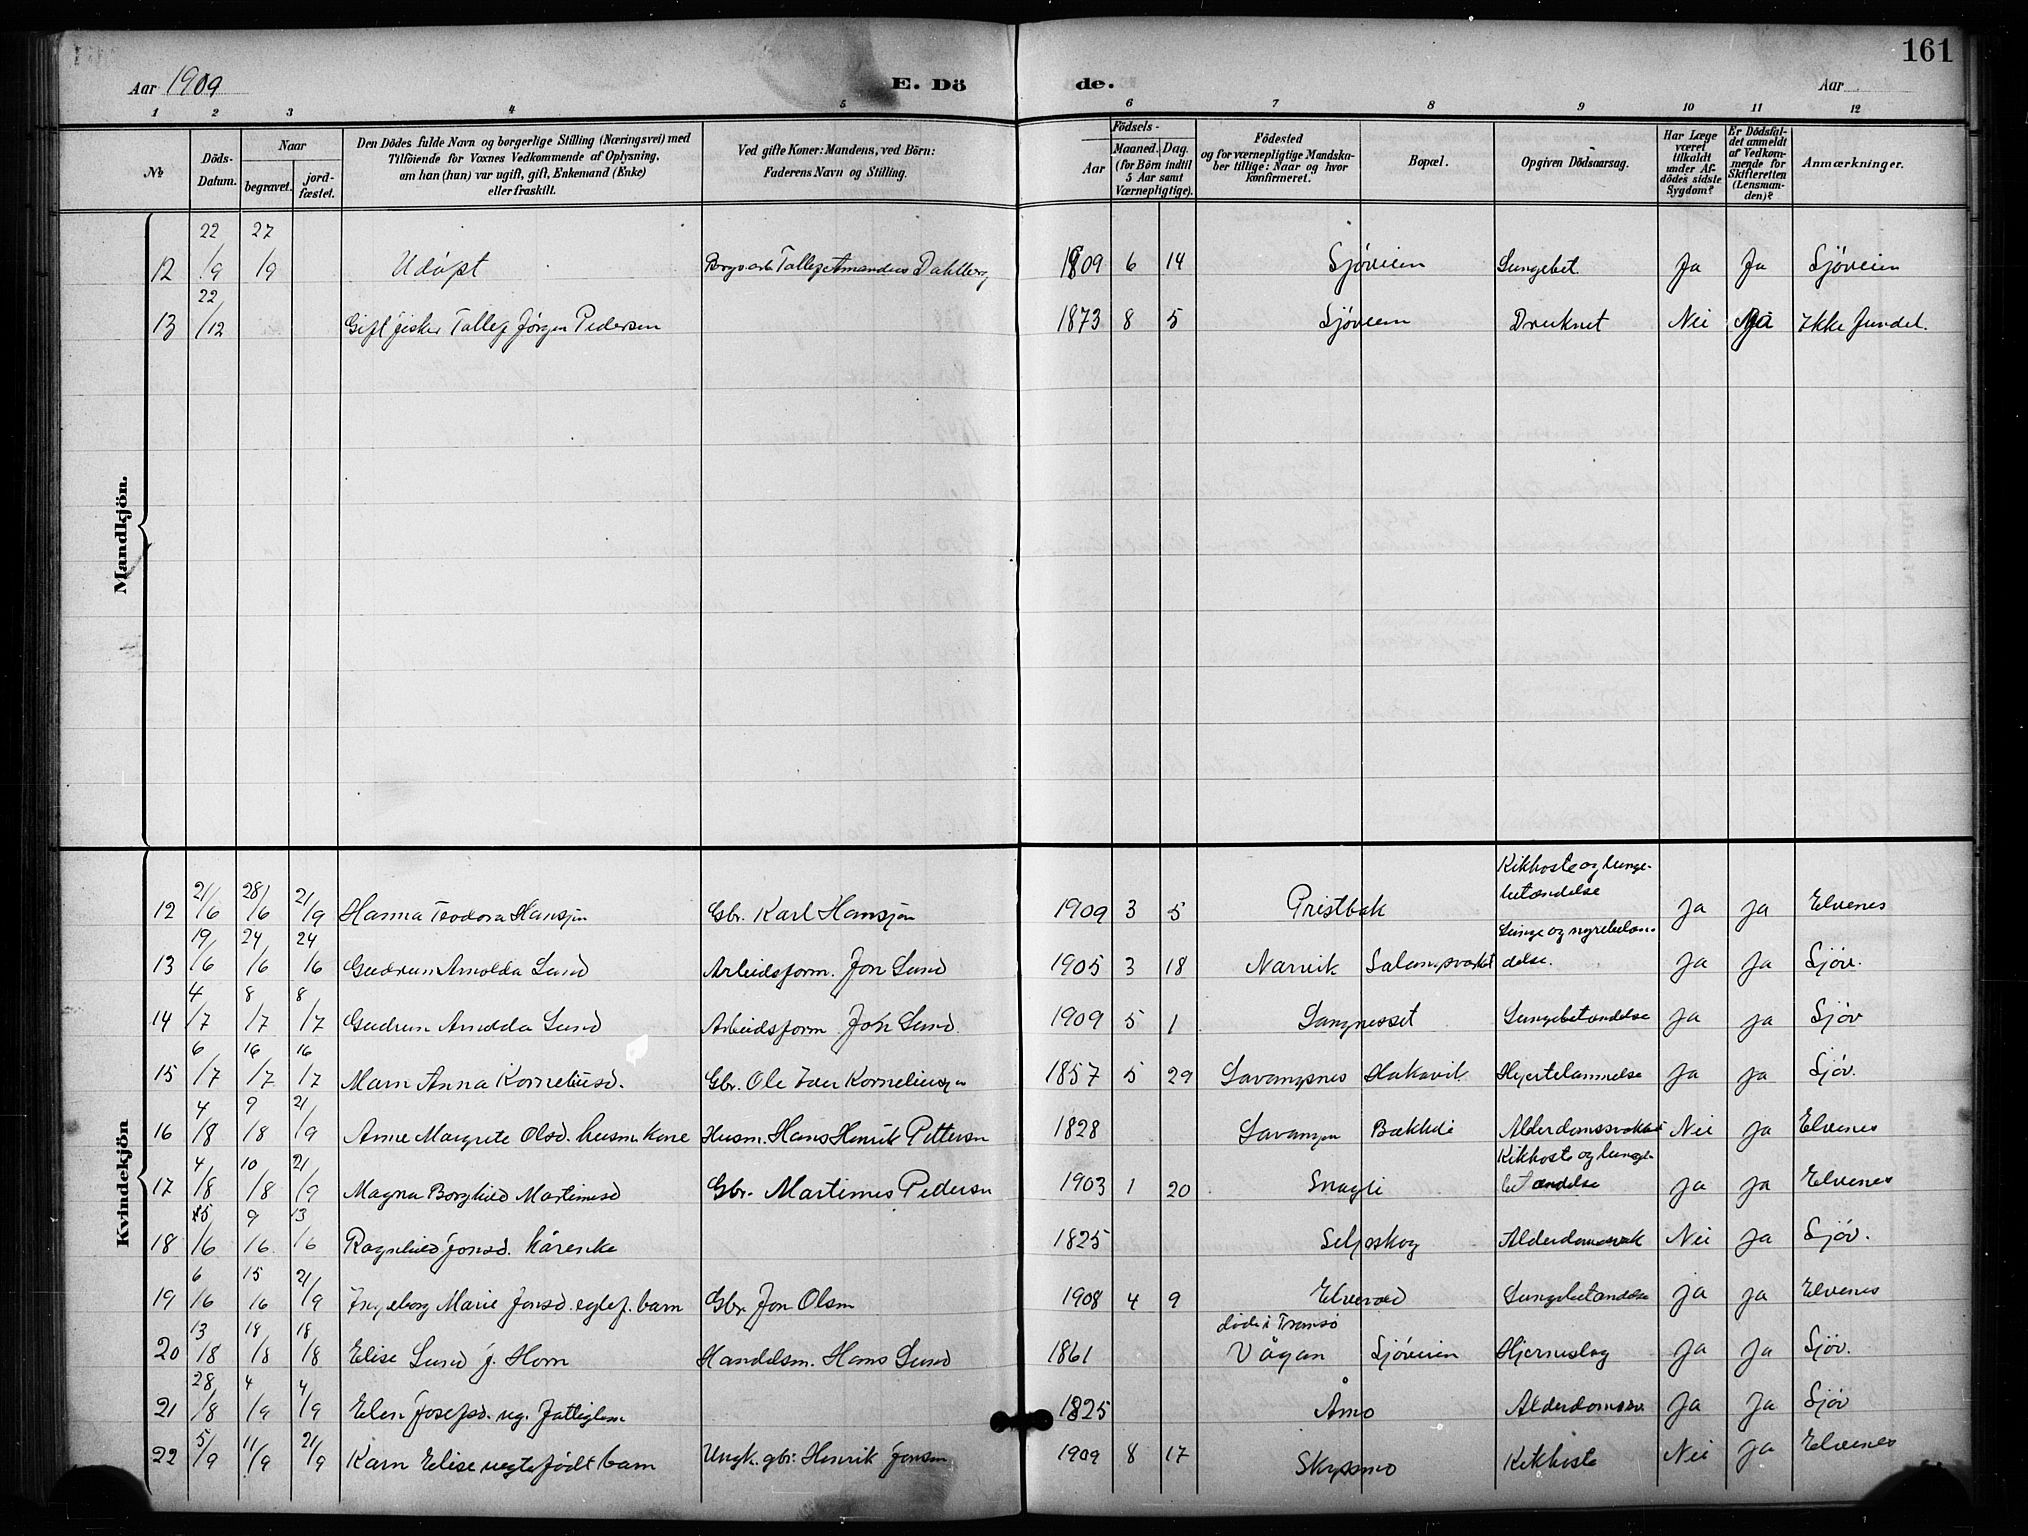 161
Aar 1909 E. Dö de. Aar
1 2 3 4 5 6 7 8 9 10 11 12
№ Döds-Datum. Naar begravet. jord-fæstet. Den Dödes fulde Navn og borgerlige Stilling (Næringsvei) med Tilföiende for Voxnes Vedkommende af Oplysning, om han (hun) var ugift, gift, Enkemand (Enke) eller fraskilt. Ved gifte Koner: Mandens, ved Börn: Faderens Navn og Stilling. Födsels- Aar Maaned. Dag. (for Börn indtil 5 Aar samt Værnepligtige). Födested og for værnepligtige Mandska-ber tillige: Naar og hvor konfirmeret. Bopæl. Opgiven Dödsaarsag. Har Læge været tilkaldt under Af-dödes sidste Sygdom? Er Dödsfal-det anmeldt af Vedkom-mende for Skifteretten (Lensman-den)? Anmærkninger.
Mandkjön.
12 22/9 27/9 Udöpt Tallef Amandus Dahlberg 1909 6 14 Sjöveien Lungebet. Ja Ja Sjöveien
13 22/12 Gift fisker Tallef Jörgen Pedersen 1873 8 5 Sjöveien Druknet Nei Ikke fundet.
Kvindekjön
12 21/6 28/6 21/9 Hanna Teodora Hansen Gbr. Karl Hansen 1909 3 5 Pristbak Kikhoste og lunge-betændelse Ja Ja Elvenes
13 19/6 24/6 24/6 Gudrun Arnolda Lund Arbeidsform. Jon Lund 1905 3 18 Narvik Lunge og nyrebetæn-delse. Ja Ja Sjöv.
14 4/7 8/7 8/7 Gudrun Arnolda Lund Arbeidsform. Jon Lund 1909 5 1 Langnesset Lungebetændelse Ja Ja Sjöv
15 6/7 16/7 16/7 Maren Anna Korneliusd. Gbr. Ole Korneliussen 1857 5 29 Lavangsnes Hakavik Hjertelammelse Ja Ja Sjöv.
16 4/8 9/8 21/9 Anne Margrete Olsd. husm. kone Husm. Hans Henrik Pettersen 1828 Lavangen Bakkeli Nei Ja Elvenes
17 4/8 10/8 21/9 Magna Borghild Martinusd Gbr. Martinus Pedersen 1903 1 20 Snagli Kikhoste og lunge-betændelse Ja Ja Elvenes
18 5/6 9/6 13/6 Ragnhild Jonsd. kårenke 1825 Selpskog Alderdomssvak Nei Ja Sjöv.
19 6/6 15/6 21/9 Ingeborg Marie Jonsd. egtef. barn Gbr. Jon Olsen 1908 4 9 Elvevold Lungebetændelse Ja Ja Elvenes
20 13/8 18/8 18/8 Elise Lund f. Horn Handelsm. Hans Lund 1861 död i Tromsö Vågan Sjöveien Hjerneslag Ja Ja Sjöv.
21 28/8 4/9 4/9 Elen Josefsd. ug. fattiglem 1825 Åmo Alderdomssv. Ja Ja Sjöv
22 5/9 11/9 21/9 Karn Elise uegte födt barn Ungk. gbr. Henrik Jonsen 1909 8 17 Skyssmo Kikhoste Nei Ja Elvenes